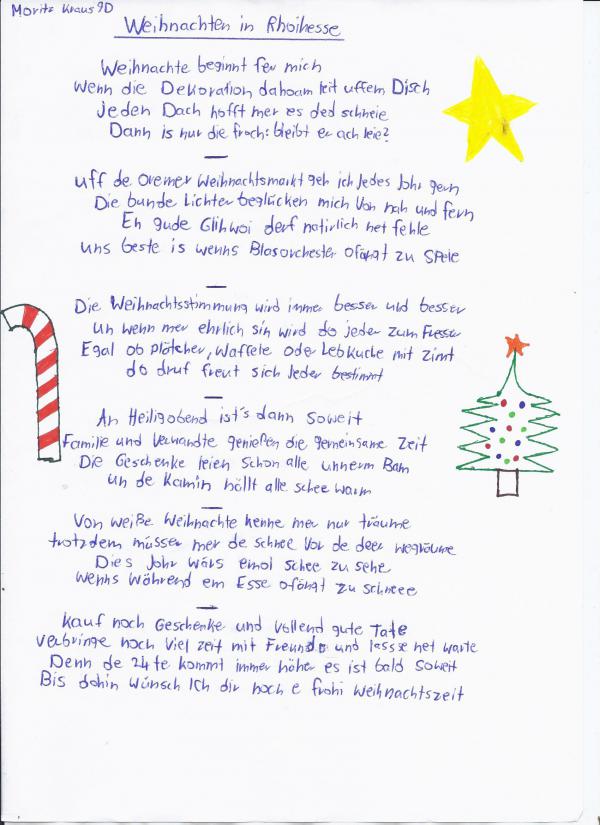 Moritz Kraus 9D
Weihnachten in Rhoihesse
Weihnachte beginnt fer mich
wenn die Dekoration dahoam leit uffem Disch
Jeden Dach hofft mer es ded schneie
Dann is nur die froch: bleibt er ach leie?
Uff de Oremer Weihnachtsmarkt geh ich Jedes Johr gern
Die bunde Lichter beglücken mich Von nah und fern
Eh gude Glihwoi derf natirlich net fehle
Uns beste is wenns Blasorchester ofängt zu Spiele
Die Weihnachtsstimmung wird immer besser und besser
Un wenn mer ehrlich sin wird do jeder zum Fresser
Egal ob Plätzher, Waffele oder Lebkuche mit Zimt
do druf freut sich Jeder bestimmt
An Heiligobend ist's dann Soweit
Familie und Verwandte genießen die gemeinsame Zeit
Die Geschenke leien Schon alle unnerm Bam
Un de Kamin hällt alle schee warm
Von weiße Weihnachte kenne mer nur träume
trotzdem müsser mer de schnee Vor de deer wegräume
Dies Johr wärs emol schee zu sehe
wenns während em Esse ofängt zu schneee
Kauf noch Geschenke und Vollend gute Tate
Verbringe noch Viel zeit mit Freunde und lassse net warte
Denn de 24te kommt immer näher es ist bald Soweit
Bis dohin wünsch Ich dir noch e frohi Weihnachtszeit